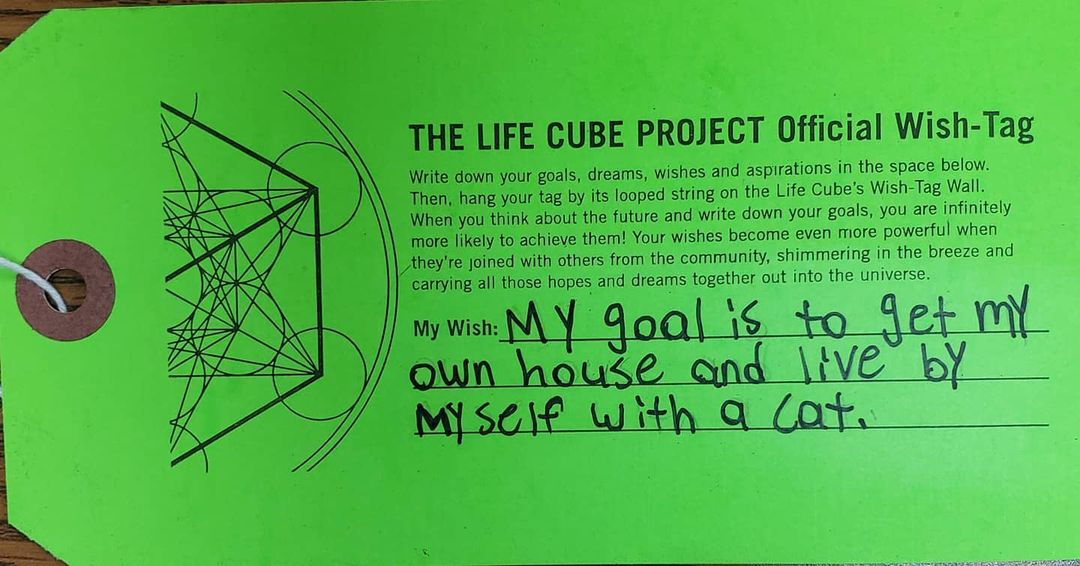 THE LIFE CUBE PROJECT Official Wish-Tag
Write down your goals, dreams, wishes and aspirations in the space below.
Then, hang your tag by its looped string on the Life Cube's Wish-Tag Wall.
When you think about the future and write down your goals, you are infinitely
more likely to achieve them! Your wishes become even more powerful when
they're joined with others from the community, shimmering in the breeze and
carrying all those hopes and dreams together out into the universe.
My Wish: MY goal is to get my
own house and live by
myself with a cat.